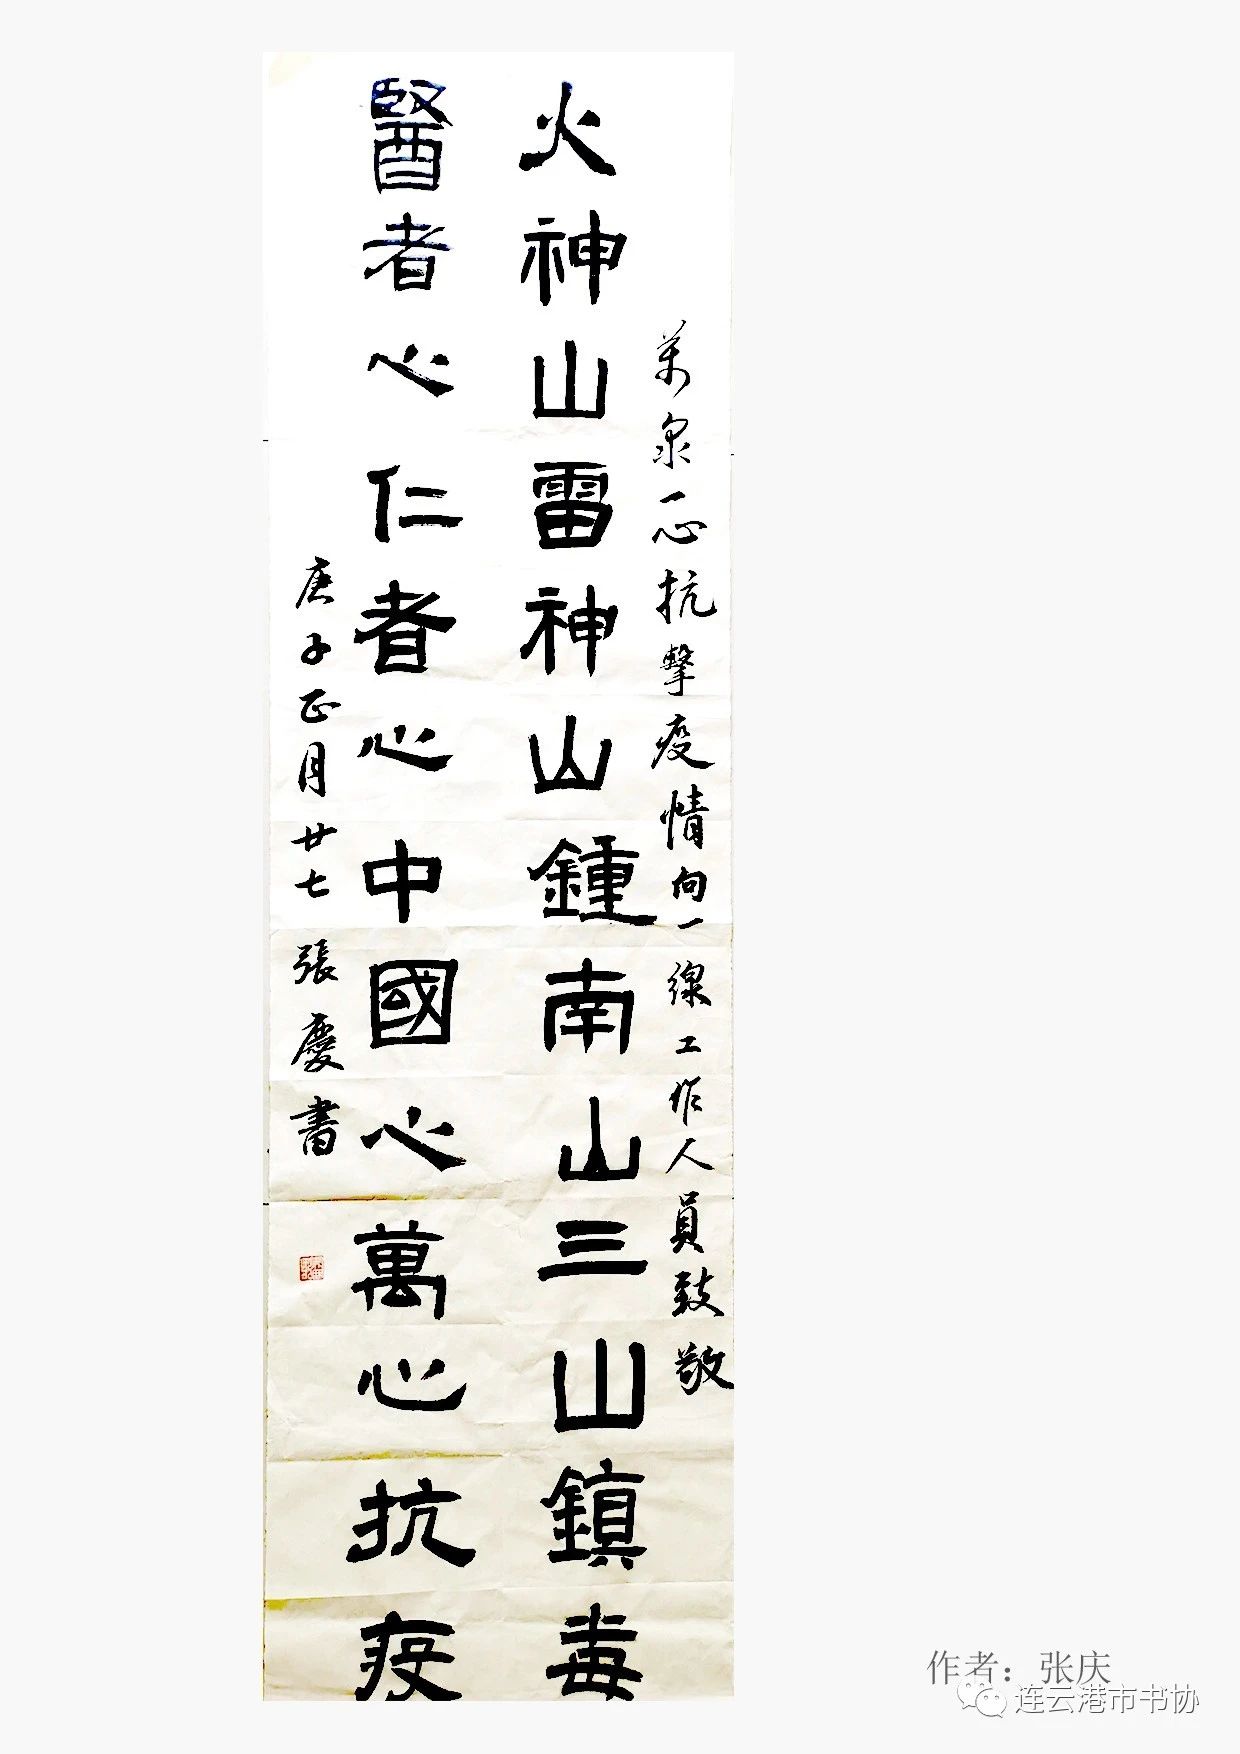 萬衆一心抗擊疫情向一線工作人員致敬
火神山雷神山鍾南山三山鎮毒
醫者心仁者心中國心萬心抗疫
庚子正月廿七張慶書
作者：张庆
连云港市书协